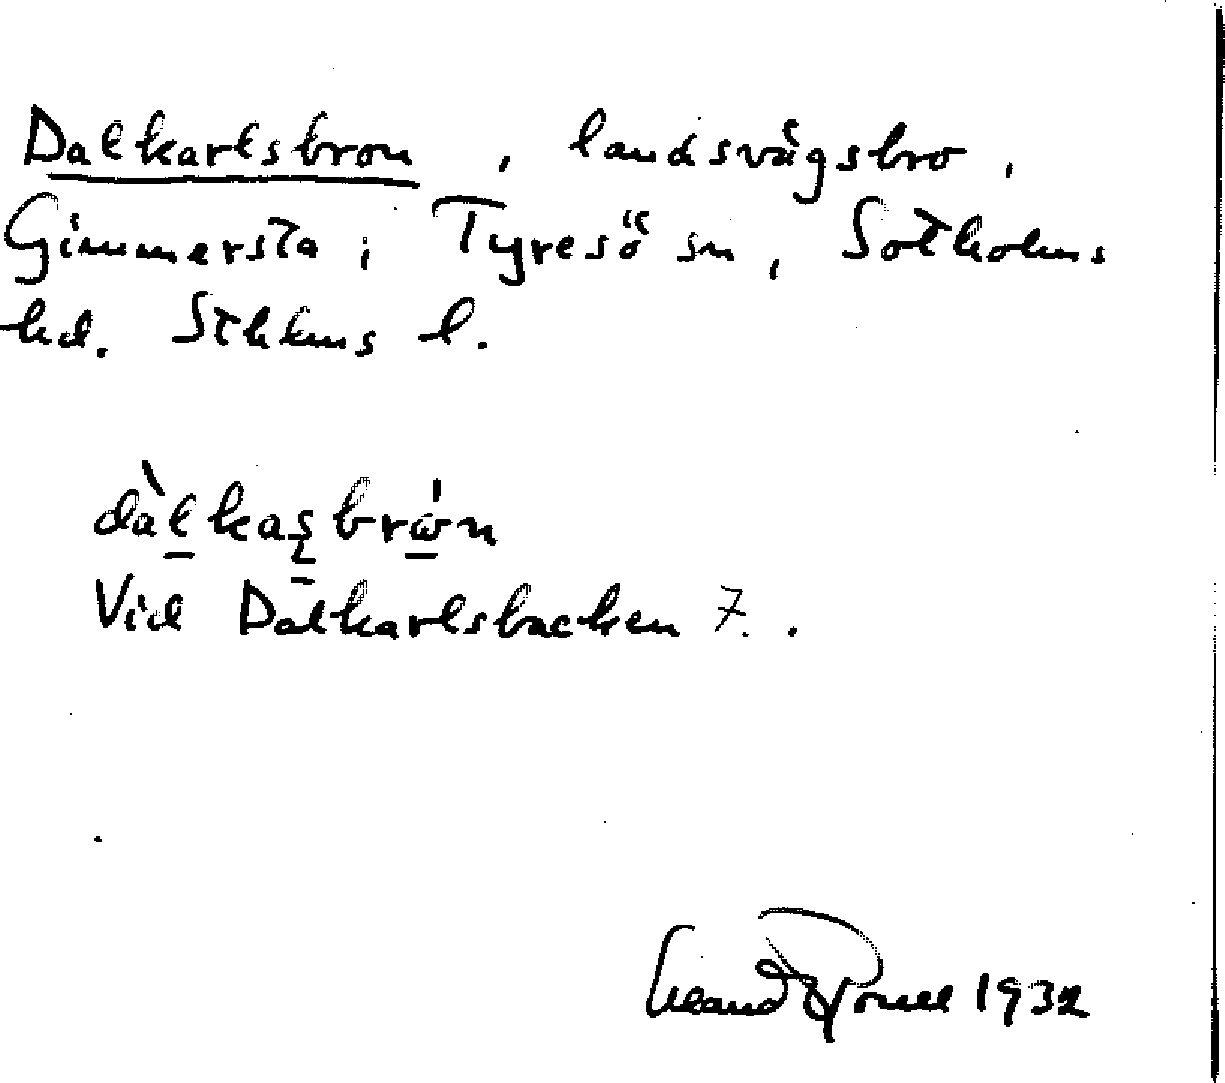 Dalkarlsbron, landsvägsbro,
Gimmersta, Tyresö sn, Sotholms
hd. Sthlms l.
dàlkaʂbrώn
Vid Dalkarlsbacken 7.
1932